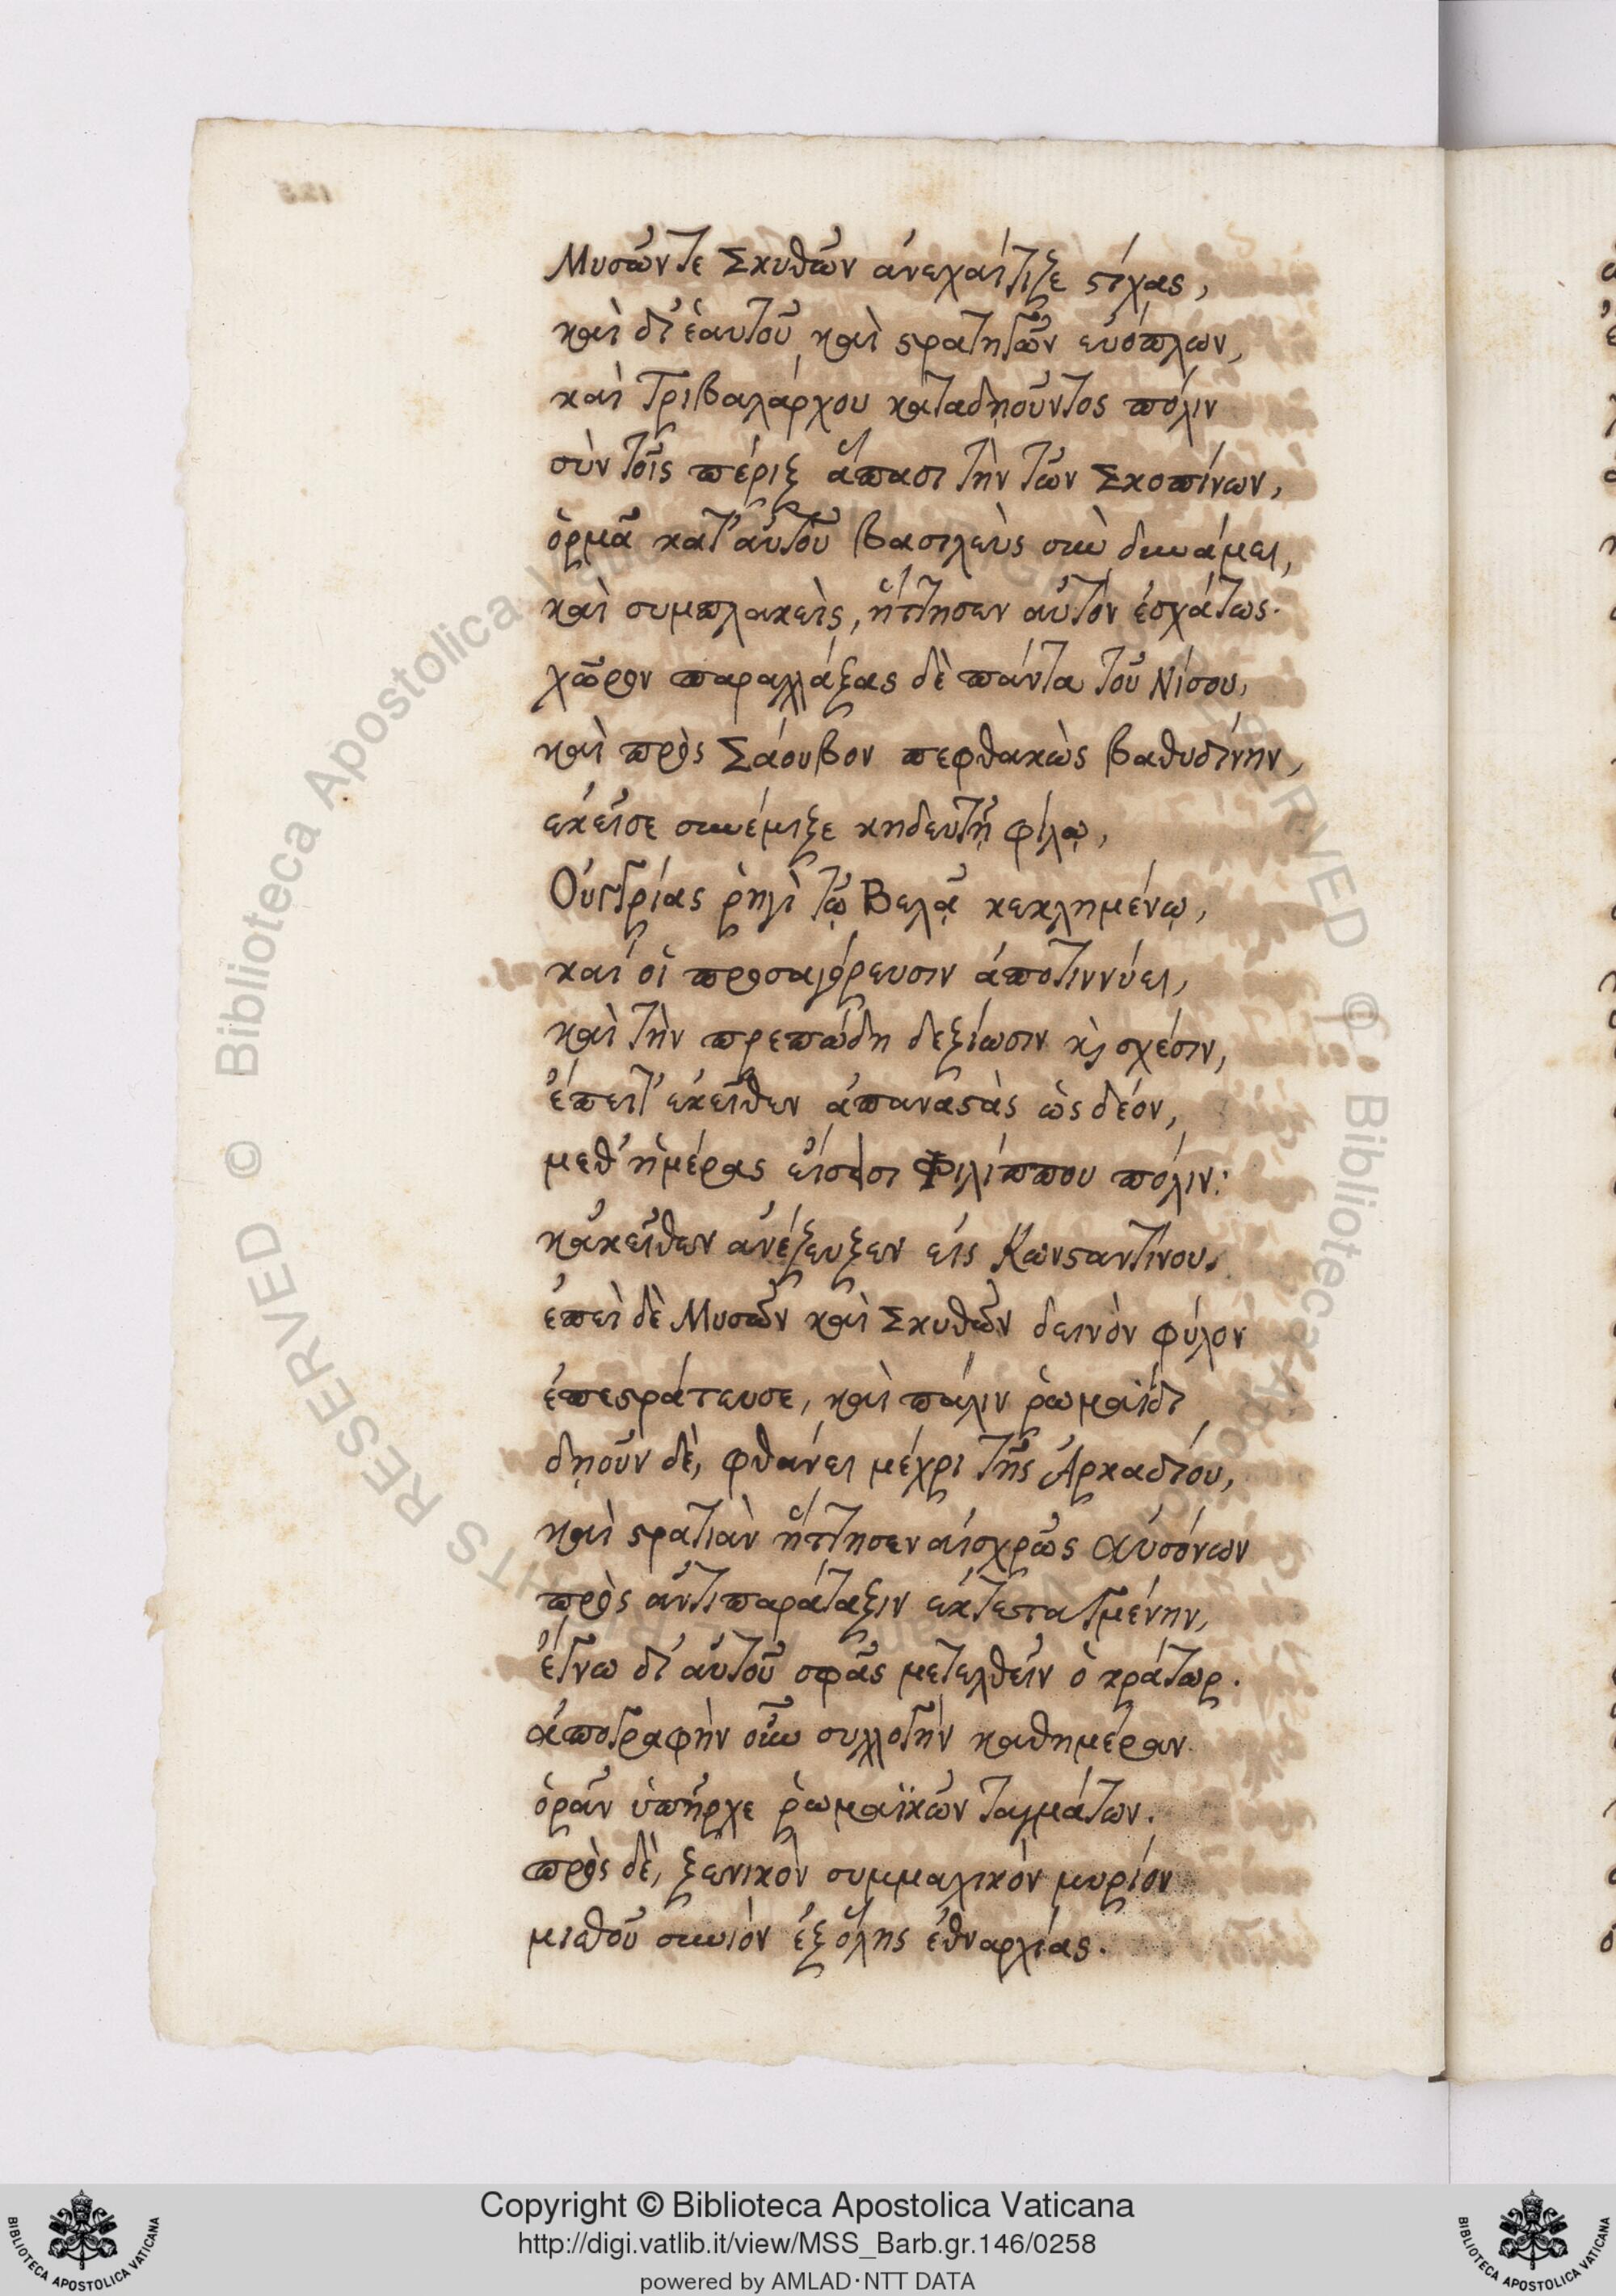 Μυσῶν τε Σκυθῶν ἀνεχαίτιζε στίχας,
καὶ δι' ἑαυτοῦ καὶ στρατηγῶν εὐόπλων,
καὶ Τριβαλάρχου καταδῃοῦντος πόλιν
σὺν τοῖς πέριξ ἅπασι τὴν τῶν Σκοπίνων,
ὁρμᾷ κατ' αὐτοῦ βασιλεὺς σὺν δυνάμει,
καὶ συμπλακεὶς, ἥττησεν αὐτὸν ἐσχάτως.
χῶρον παραλλάξας δὲ πάντα τοῦ Νίσου,
καὶ πρὸς Σάουβον πεφθακὼς βαθυδίνην,
ἐκεῖσε συνέμιξε κηδευτῇ φίλῳ,
Οὐγγρίας ῥηγὶ τῷ Βελᾷ κεκλημένῳ,
καί οἱ προσαγόρευσιν ἀποτιννύει,
καὶ τὴν πρεπώδη δεξίωσιν κ̀ σχέσιν,
ἔπειτ' ἐκεῖθεν ἀπαναστὰς ὡς δέον,
μεθ' ἡμέρας εἴσεισι Φιλίππου πόλιν:
κἀκεῖθεν ἀνέζευξεν εἰς Κωνσταντίνου.
ἐπεὶ δὲ Μυσῶν καὶ Σκυθῶν δεινὸν φύλον
ἐπεστράτευσε, καὶ πάλιν ῥωμαΐδι
δῃοῦν δὲ, φθάνει μέχρι τῆς Ἀρκαδίου,
καὶ στρατιὰν ἥττησεν αἰσχρῶς Αὐσόνων
πρὸς ἀντιπαράταξιν ἐκτεταγμένην,
ἔγνω δι' αὐτοῦ σφᾶς μετελθεῖν ὁ κράτωρ.
ἀπογραφὴν οὖν συλλογὴν καθημέραν
ὁρᾶν ὑπῆρχε ῥωμαϊκῶν ταγμάτων.
πρὸς δὲ, ξενικὸν συμμαχικὸν μυρίον
μισθοῦ συνιὸν ἐξ ὅλης ἐθναρχίας.
Copyright © Biblioteca Apostolica Vaticana
http://digi.vatlib.it/view/MSS_Barb.gr.146/0258
powered by AMLAD·NTT DATA